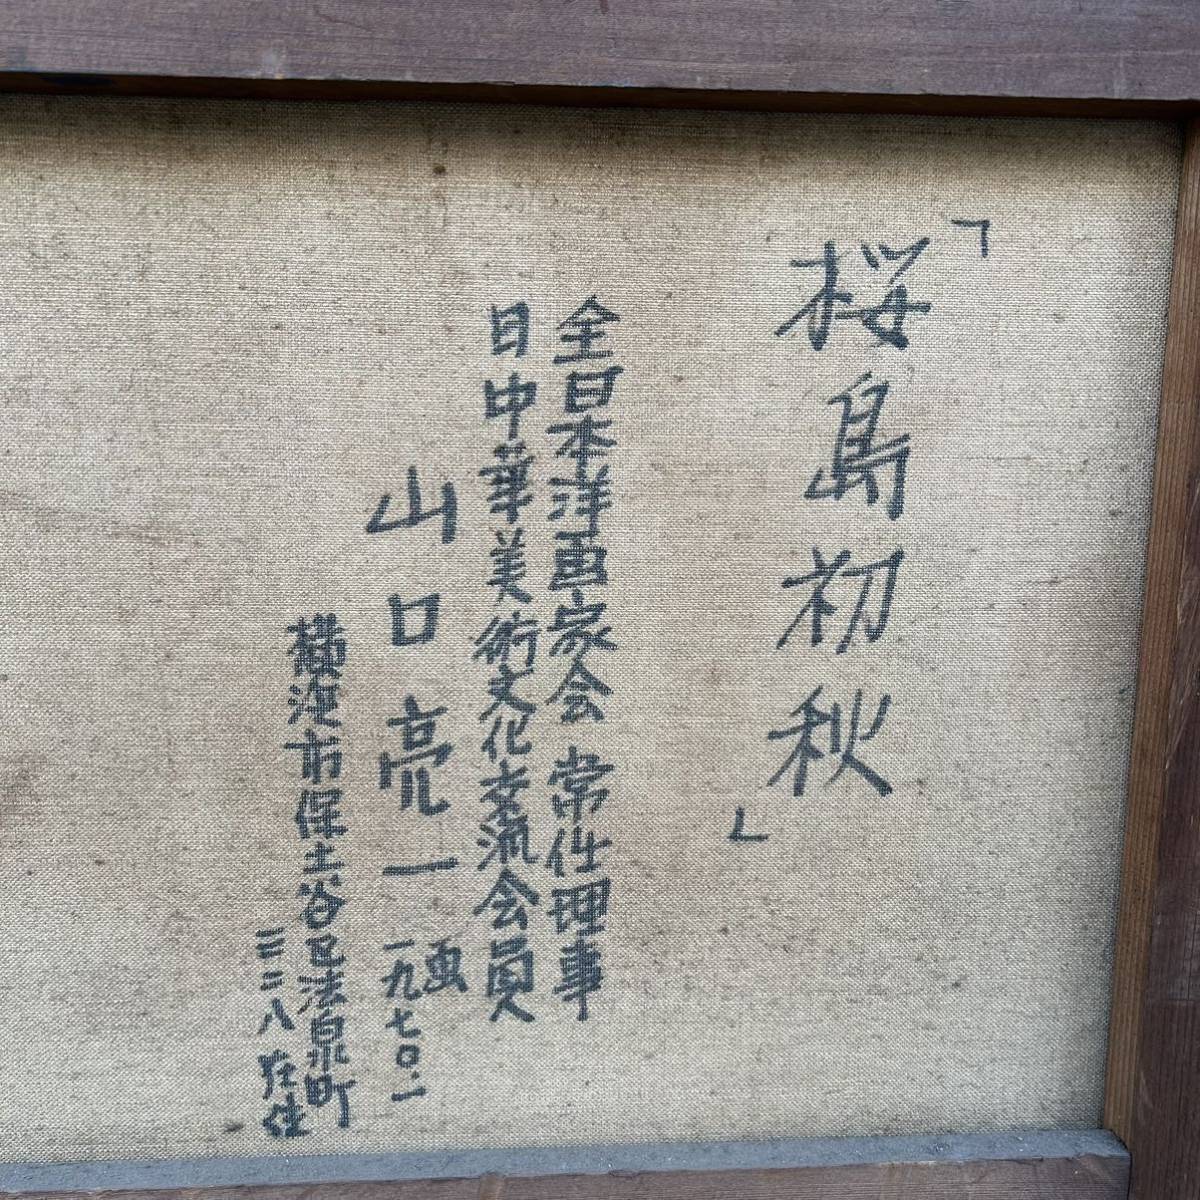 「桜島初秋」
全日本洋画家会 常任理事
日中華美術文化交流会員
山口亮一画
一九七〇.二
横浜市保土谷区法泉町
三二八在住